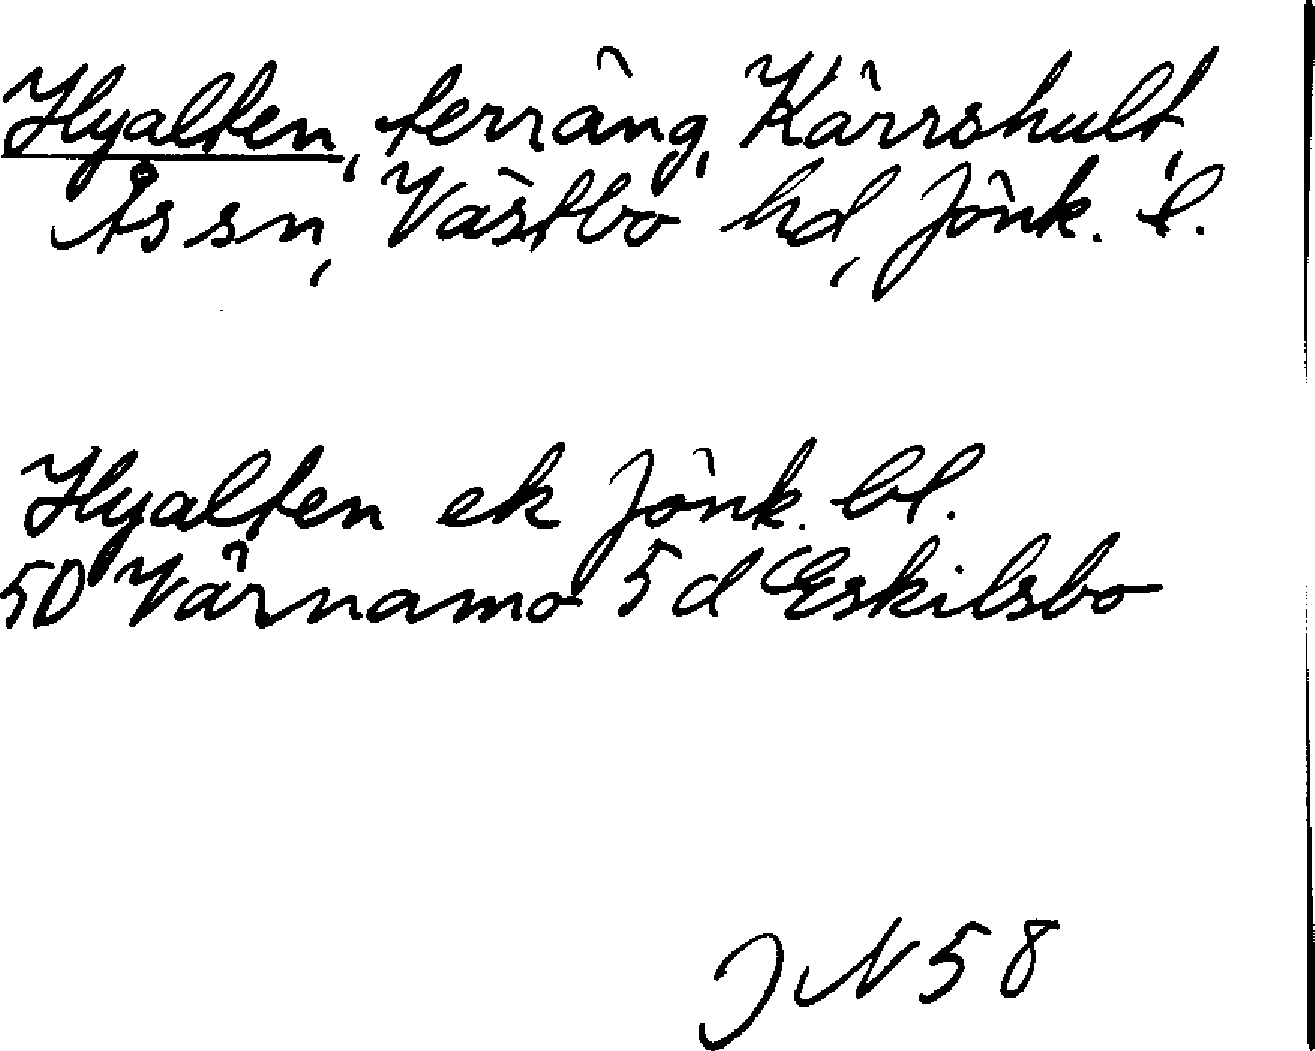 Hyalten, terräng, Kärrshult,
Ås sn, Västbo hd, Jönk. l.
Hyalten ek Jönk. bl.
5D Värnamo 5 d Eskilsbo
JN 58